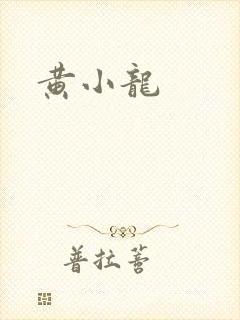 黄小龍
普拉菩